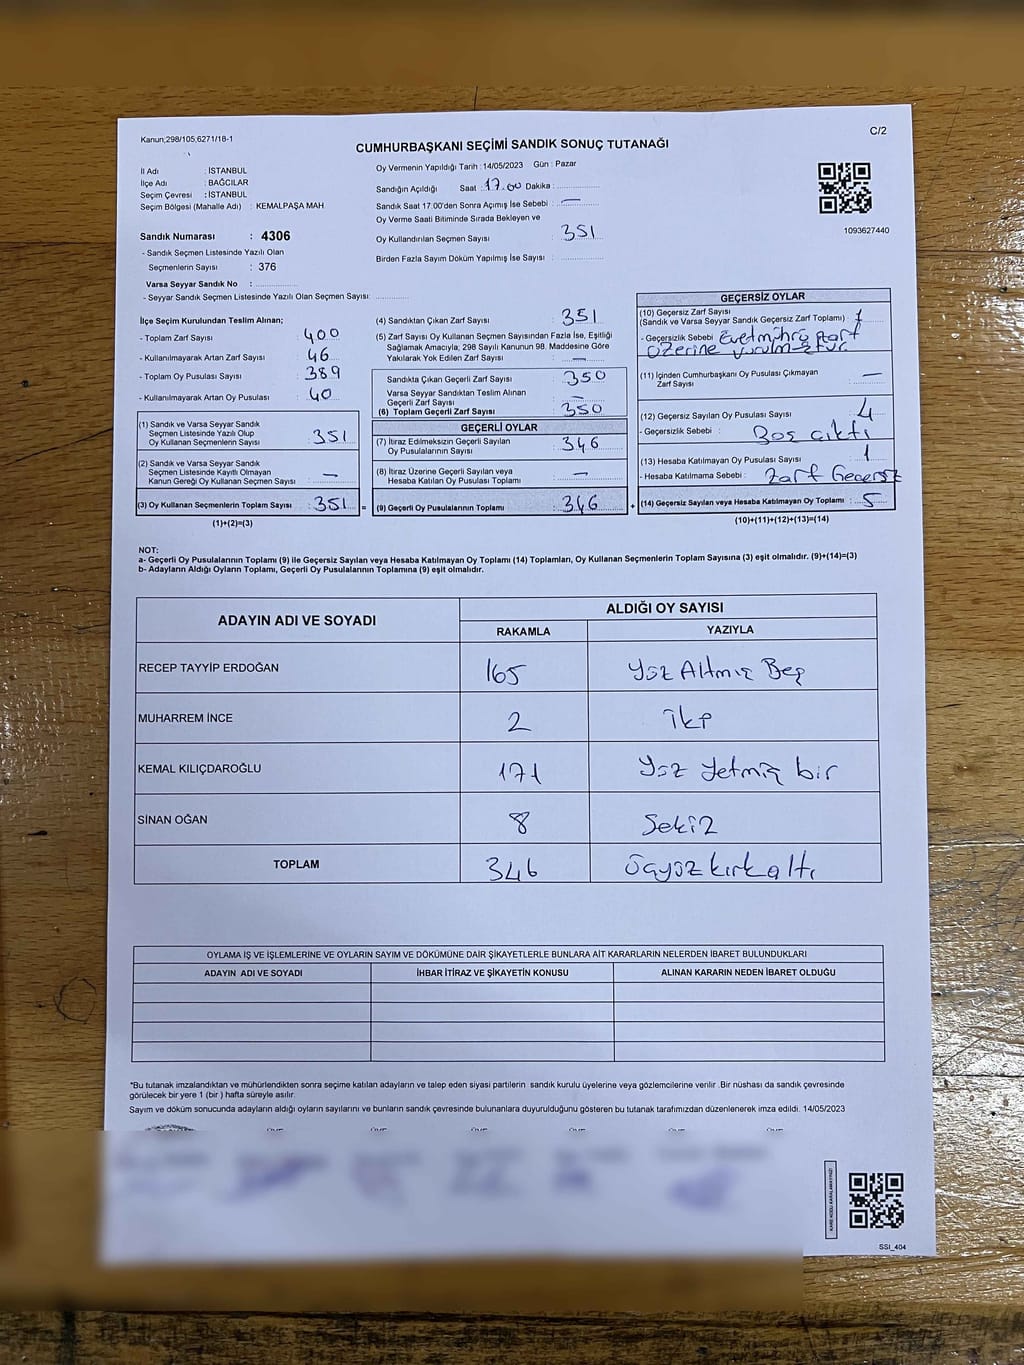 Kanun;298/105,6271/18-1
C/2
CUMHURBAŞKANI SEÇİMİ SANDIK SONUÇ TUTANAĞI
İl Adı : İSTANBUL
İlçe Adı : BAĞCILAR
Seçim Çevresi : İSTANBUL
Seçim Bölgesi (Mahalle Adı) : KEMALPAŞA MAH
Oy Vermenin Yapıldığı Tarih : 14/05/2023 Gün : Pazar
Sandığın Açıldığı Saat : 17.00 Dakika :
Sandık Saat 17:00'den Sonra Açımış İse Sebebi : —
Oy Verme Saati Bitiminde Sırada Bekleyen ve
Oy Kullandırılan Seçmen Sayısı : 351
Birden Fazla Sayım Döküm Yapılmış İse Sayısı :
1093627440
Sandık Numarası : 4306
- Sandık Seçmen Listesinde Yazılı Olan
Seçmenlerin Sayısı : 376
Varsa Seyyar Sandık No :
- Seyyar Sandık Seçmen Listesinde Yazılı Olan Seçmen Sayısı:
İlçe Seçim Kurulundan Teslim Alınan;
- Toplam Zarf Sayısı : 400
- Kullanılmayarak Artan Zarf Sayısı : 46
- Toplam Oy Pusulası Sayısı : 389
- Kullanılmayarak Artan Oy Pusulası : 40
(1) Sandık ve Varsa Seyyar Sandık
Seçmen Listesinde Yazılı Olup
Oy Kullanan Seçmenlerin Sayısı : 351
(2) Sandık ve Varsa Seyyar Sandık
Seçmen Listesinde Kayıtlı Olmayan
Kanun Gereği Oy Kullanan Seçmen Sayısı : —
(3) Oy Kullanan Seçmenlerin Toplam Sayısı : 351 =
(1)+(2)=(3)
(4) Sandıktan Çıkan Zarf Sayısı : 351
(5) Zarf Sayısı Oy Kullanan Seçmen Sayısından Fazla İse, Eşitliği
Sağlamak Amacıyla; 298 Sayılı Kanunun 98. Maddesine Göre
Yakılarak Yok Edilen Zarf Sayısı : —
Sandıkta Çıkan Geçerli Zarf Sayısı : 350
Varsa Seyyar Sandıktan Teslim Alınan
Geçerli Zarf Sayısı : —
(6) Toplam Geçerli Zarf Sayısı : 350
GEÇERLİ OYLAR
(7) İtiraz Edilmeksizin Geçerli Sayılan
Oy Pusulasının Sayısı : 346
(8) İtiraz Üzerine Geçerli Sayılan veya
Hesaba Katılan Oy Pusulası Toplamı : —
(9) Geçerli Oy Pusulalarının Toplamı : 346 +
GEÇERSİZ OYLAR
(10) Geçersiz Zarf Sayısı
(Sandık ve Varsa Seyyar Sandık Geçersiz Zarf Toplamı) : 1
- Geçersizlik Sebebi : Evetmührü zarf
üzerine vurulmuştur
(11) İçinden Cumhurbaşkanı Oy Pusulası Çıkmayan
Zarf Sayısı : —
(12) Geçersiz Sayılan Oy Pusulası Sayısı : 4
- Geçersizlik Sebebi : Boş çıktı
(13) Hesaba Katılmayan Oy Pusulası Sayısı : 1
- Hesaba Katılmama Sebebi : Zarf Geçersiz
(14) Geçersiz Sayılan veya Hesaba Katılmayan Oy Toplamı : 5
(10)+(11)+(12)+(13)=(14)
NOT:
a- Geçerli Oy Pusulalarının Toplamı (9) ile Geçersiz Sayılan veya Hesaba Katılmayan Oy Toplamı (14) Toplamları, Oy Kullanan Seçmenlerin Toplam Sayısına (3) eşit olmalıdır. (9)+(14)=(3)
b- Adayların Aldığı Oyların Toplamı, Geçerli Oy Pusulalarının Toplamına (9) eşit olmalıdır.
ADAYIN ADI VE SOYADI
ALDIĞI OY SAYISI
RAKAMLA YAZIYLA
RECEP TAYYİP ERDOĞAN 165 Yüz Altmış Beş
MUHARREM İNCE 2 İki
KEMAL KILIÇDAROĞLU 171 Yüz Yetmiş bir
SİNAN OĞAN 8 Sekiz
TOPLAM 346 üçyüzkırkaltı
OYLAMA İŞ VE İŞLEMLERİNE VE OYLARIN SAYIM VE DÖKÜMÜNE DAİR ŞİKAYETLERLE BUNLARA AİT KARARLARIN NELERDEN İBARET BULUNDUKLARI
ADAYIN ADI VE SOYADI İHBAR İTİRAZ VE ŞİKAYETİN KONUSU ALINAN KARARIN NEDEN İBARET OLDUĞU
*Bu tutanak imzalandıktan ve mühürlendikten sonra seçime katılan adayların ve talep eden siyasi partilerin sandık kurulu üyelerine veya gözlemcilerine verilir .Bir nüshası da sandık çevresinde
görülecek bir yere 1 (bir ) hafta süreyle asılır.
Sayım ve döküm sonucunda adayların aldığı oyların sayılarını ve bunların sandık çevresinde bulunanlara duyurulduğunu gösteren bu tutanak tarafımızdan düzenlenerek imza edildi. 14/05/2023
KARE KODU KARALAMAYINIZ!
SSI_404